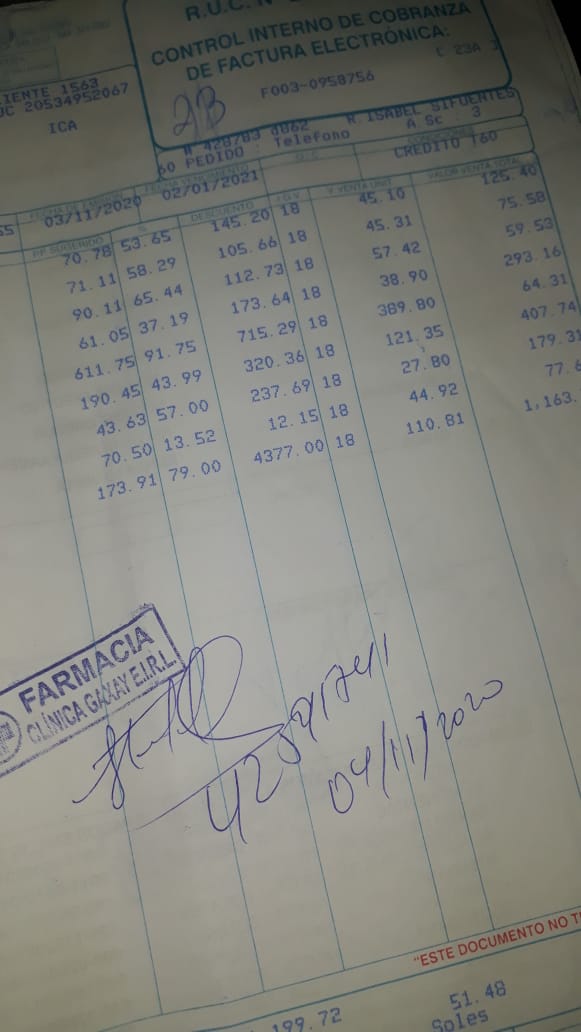 R.U.C. N
CONTROL INTERNO DE COBRANZA
DE FACTURA ELECTRÓNICA:
F003-0958756
C 23A 3
IENTE 1563
UC 20534952067
ICA
R ISABEL SIFUENTES
60 PEDIDO : Telefono
A Sc : 3
CONDICIONES
CREDITO T60
FECHA DE EMISIÓN
FECHA VENCIMIENTO
03/11/2020
02/01/2021
PP SUGERIDO % DESCUENTO I.G.V. V. VENTA UNIT. VALOR VENTA TOTAL
70.78 53.65 145.20 18 45.10 125.40
71.11 58.29 105.66 18 45.31 75.58
90.11 65.44 112.73 18 57.42 59.53
61.05 37.19 173.64 18 38.90 293.16
611.75 91.75 715.29 18 389.80 64.31
190.45 43.99 320.36 18 121.35 407.74
43.63 57.00 237.69 18 27.80 179.31
70.50 13.52 12.15 18 44.92 77.6
173.91 79.00 4377.00 18 110.81 1,163.
FARMACIA
CLÍNICA GAXAY E.I.R.L
04/11/2020
"ESTE DOCUMENTO NO T
199.72
51.48
Soles